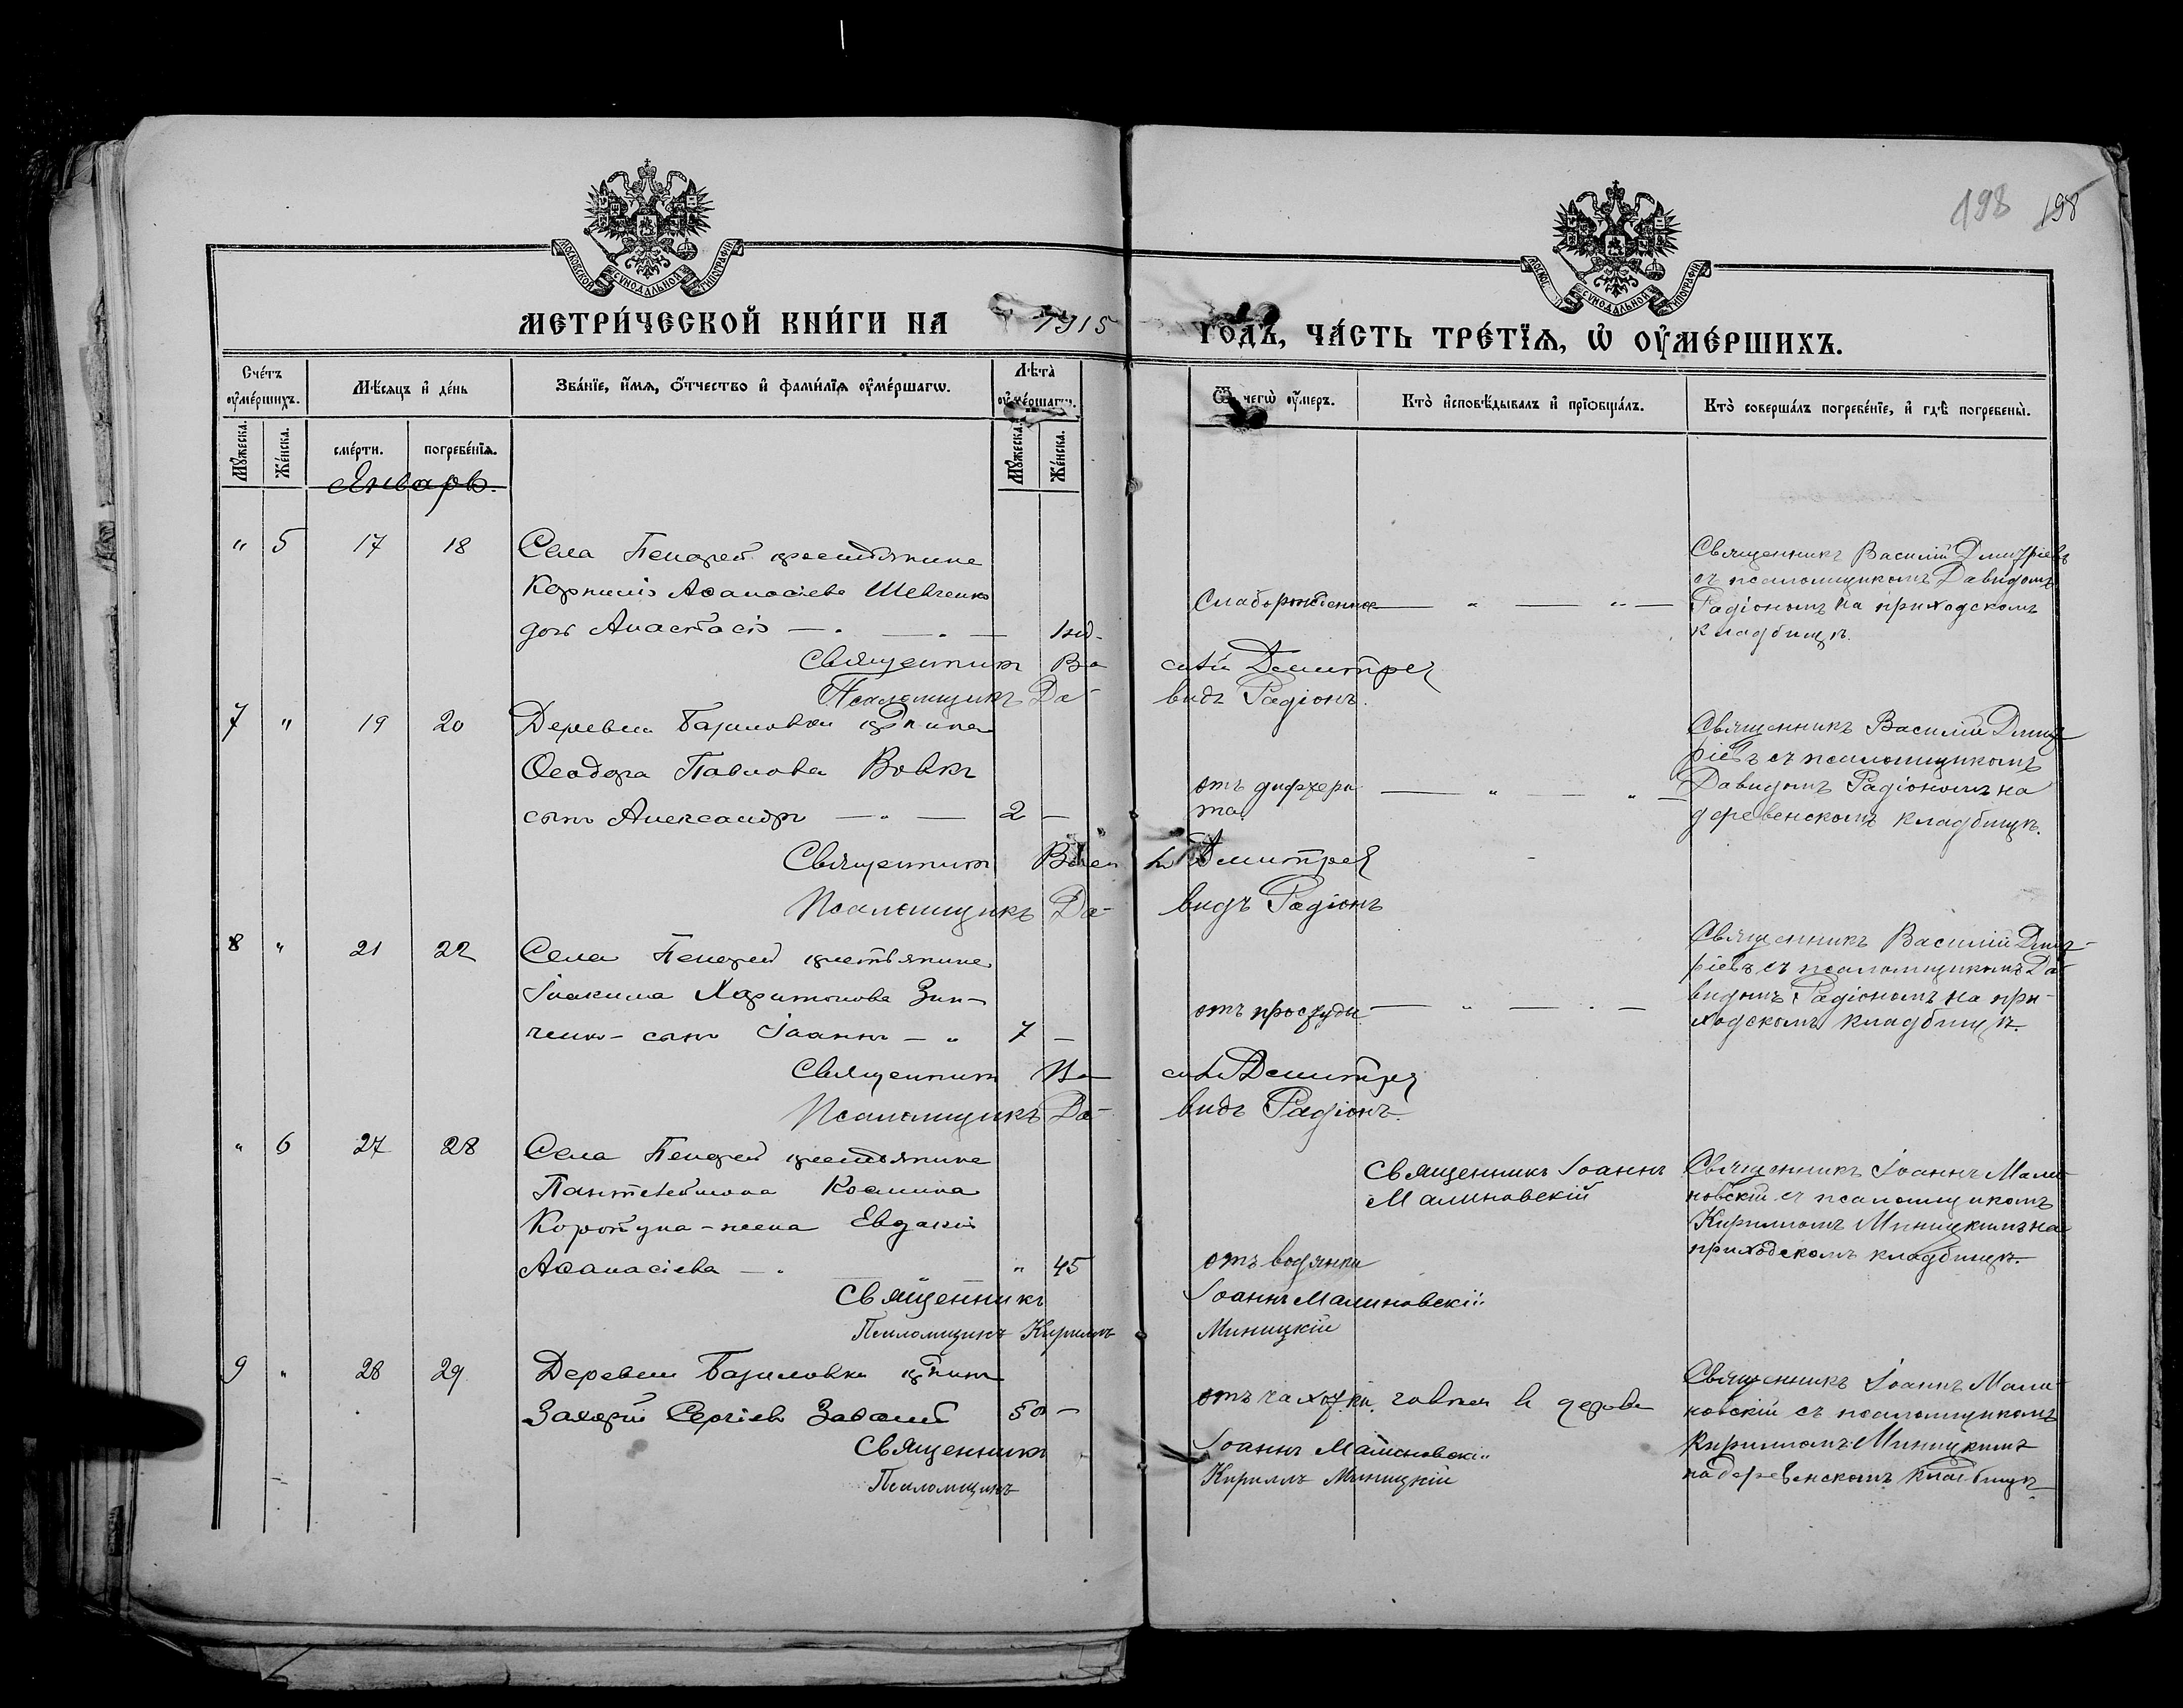 198 198
МОСКОВСКОЙ СѴНОДАЛЬНОЙ ТИПОГРАФІИ
СѴНОДАЛЬНОЙ ТИПОГРАФІИ
МЕТРИ́ЧЕСКОЙ КНИ́ГИ НА 1915 ГОДЪ, ЧА́СТЬ ТРЕ́ТЇѦ, Ѡ҆ ОУ҆МЕ́РШИХЪ.
Сче́тъ оу҆ме́ршихъ.
Мѣ́сяцъ и҆ де́нь
Зва́нїе, и҆́мѧ, ѻ҆́тчество и҆ фами́лїѧ оу҆ме́ршагѡ.
Лѣ́та оу҆ме́ршагѡ.
Ѿ чегѡ̀ оу҆́меръ.
Кто̀ и҆сповѣ́дывалъ и҆ прїѡбща́лъ.
Кто̀ соверша́лъ погребе́нїе, и҆ гдѣ̀ погребены̀.
Мꙋ́жеска. Же́нска. сме́рти. погребе́нїѧ. Мꙋ́жеска. Же́нска.
Январь.
" 5 17 18
Села крестьянина
Корнилія Аѳанасіева Шевченко
дочь Анастасія — 1 нд.
Слаборожденіе
Священникъ Василій Дмитріевъ
съ псаломщикомъ Давидомъ
Радіономъ на приходскомъ
кладбищѣ.
Священникъ Василій
Псаломщикъ Давидъ Радіонъ.
7 " 19 20
Деревни Базиловки кр-нина
Ѳеодора Павлова Вовкъ
сынъ Александръ — 2 —
отъ дифтери
та
Священникъ Василій Дмит
ріевъ съ псаломщикомъ
Давидомъ Радіономъ на
деревенскомъ кладбищѣ.
Священникъ
Псаломщикъ Давидъ Радіонъ
8 " 21 22
Села крестьянина
Іоакима Харитонова Зин-
ченко - сынъ Іоаннъ — " 7 —
отъ простуды
Священникъ Василій Дмит-
ріевъ съ псаломщикомъ Да-
видомъ Радіономъ на при-
ходскомъ кладбищѣ.
Священникъ Василій
Псаломщикъ Давидъ Радіонъ.
" 6 27 28
Села крестьянина
Пантелеимона Космина
жена Евдокія
Аѳанасіева — " 45
отъ водянки
Священникъ Іоаннъ
Малиновскій
Священникъ Іоаннъ Мали-
новскій съ псаломщикомъ
Кирилломъ Миницкимъ на
приходскомъ кладбищѣ.
Священникъ Іоаннъ Малиновскій
Псаломщикъ Кириллъ Миницкій
9 " 28 29
Деревни Базиловки кр-нинъ
Захарій Сергіевъ 50 —
отъ чахотки.
Священникъ Іоаннъ Мали-
новскій съ псаломщикомъ
Кирилломъ Миницкимъ
на деревенскомъ кладбищѣ.
Священникъ Іоаннъ Малиновскій
Псаломщикъ Кириллъ Миницкій